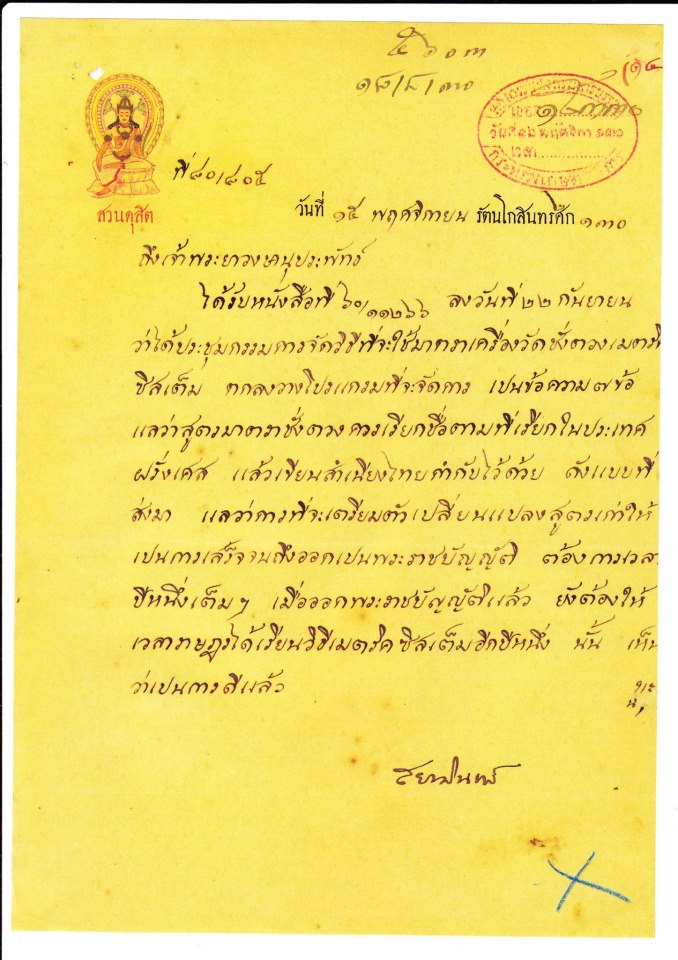 ๕๖๐๓
๑๘/๘/๓๐
(๑๔
วันที่ ๑๒ พฤศจิกา ๑๓๐
เวลา
กระทรวงเกษตร
ที่ ๘๐/๘๐๕
สวนดุสิต
วันที่ ๑๕ พฤศจิกายน รัตนโกสินทรศก ๑๓๐
ถึงเจ้าพระยาวงษานุประพัทธ์
ได้รับหนังสือที่ ๖๐/๑๑๒๖๖ ลงวันที่ ๒๒ กันยายน
ว่าได้ประชุมกรรมการจัดวิธีที่จะใช้มาตราเครื่องวัดชั่งตวงเมตริค
ซิสเต็ม ตกลงวางโปรแกรมที่จะจัดการ เปนข้อความ ๗ ข้อ
แลว่าสูตรมาตราชั่งตวงควรเรียกชื่อตามที่เรียกในประเทศ
ฝรั่งเศส แล้วเขียนสำเนียงไทยกำกับไว้ด้วย ดังแบบที่
ส่งมา แลว่าการที่จะเตรียมตัวเปลี่ยนแปลงสูตรเก่าให้
เปนการเสร็จจนถึงออกเปนพระราชบัญญัติ ต้องการเวลา
ปีหนึ่งเต็มๆ เมื่อออกพระราชบัญญัติแล้ว ยังต้องให้
เวลาราษฎรได้เรียนวิธีเมตริคซิสเต็มอีกปีหนึ่ง นั้น เห็น
ว่าเปนการดีแล้ว
สยามินทร์